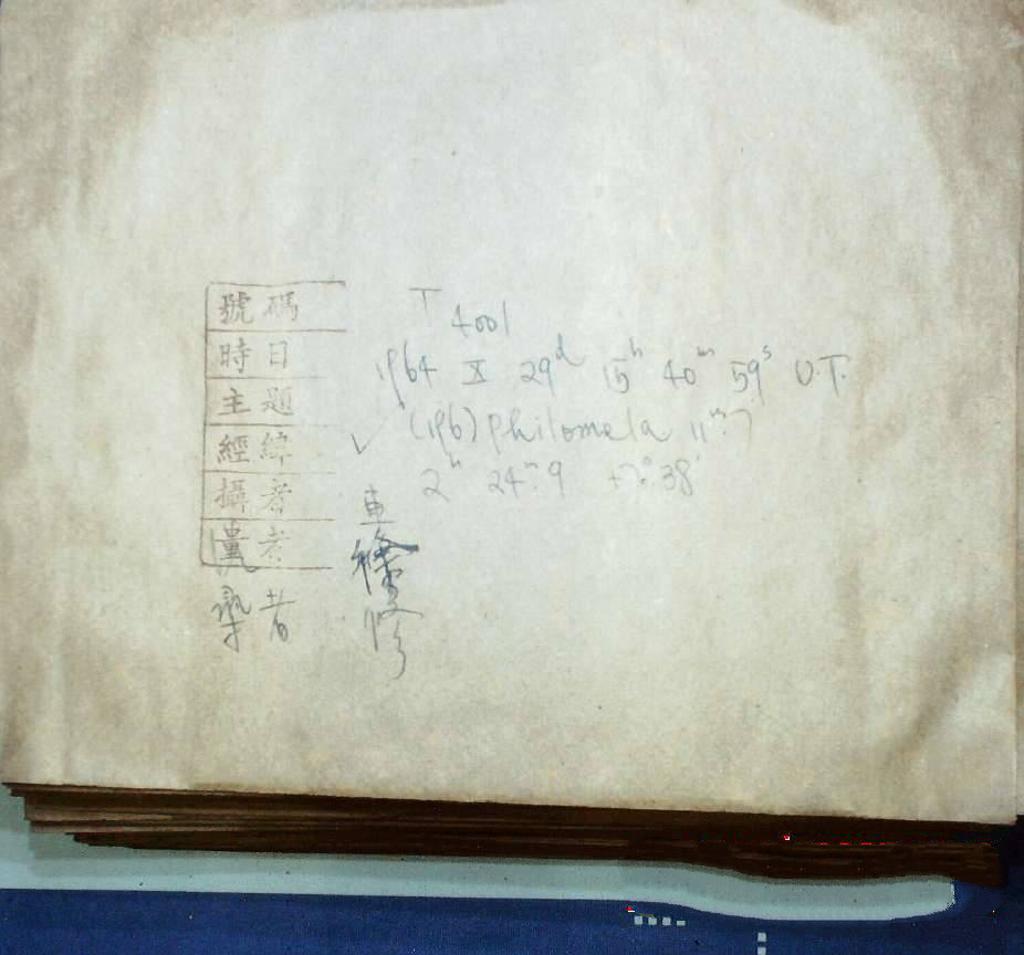 號碼 T 4001
時日 1964 X 29d 15h 40m 59s U.T.
主題 (196) Philomela 11m.7
經緯 ✓ 2h 24m.9 +7°.38'
攝者 車
量者
者